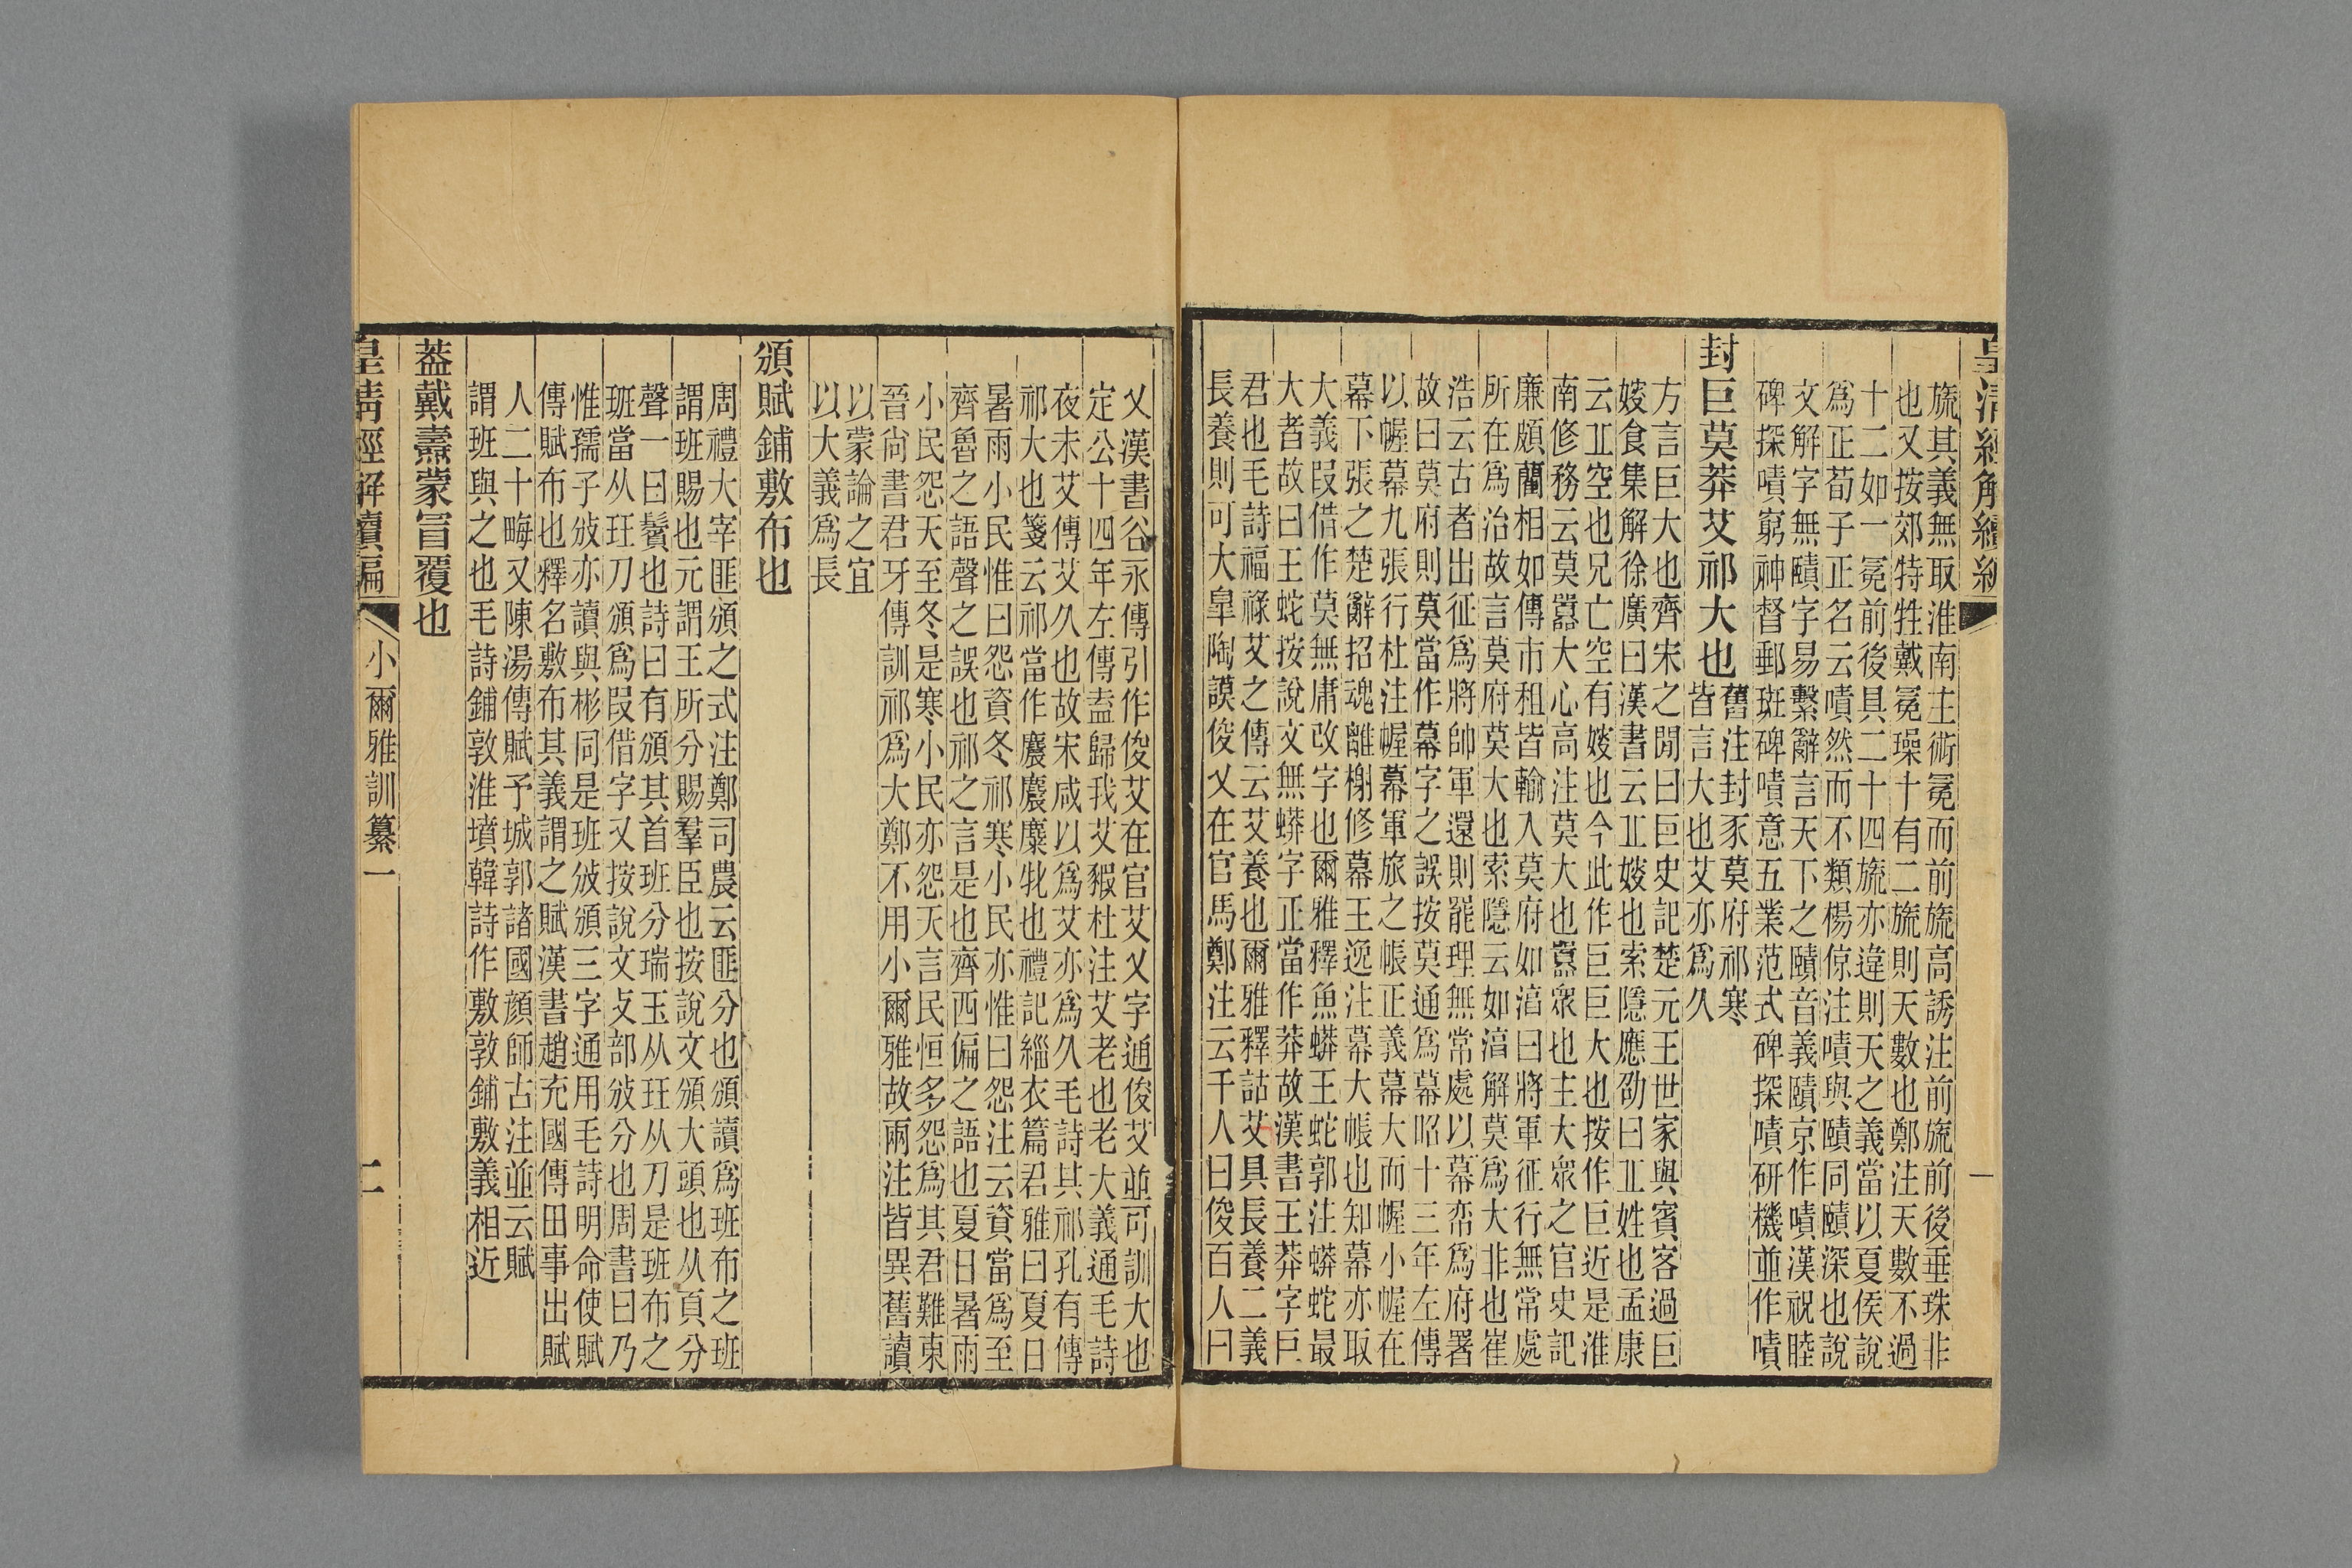 皇清經解續編
一
旒其義無取淮南主術冕而前旒高誘注前旒前後垂珠非
也又按郊特牲戴冕璪十有二旒則天數也鄭注天數不過
十二如一冕前後具二十四旒亦違則天之義當以夏侯說
爲正荀子正名云嘖然而不類楊倞注嘖與賾同賾深也說
文解字無賾字易繫辭言天下之賾音義賾京作嘖漢祝睦
碑探嘖窮神督郵斑碑嘖意五業范式碑探嘖研機並作嘖
封巨莫莽艾祁大也
舊注封豕莫府祁寒
皆言大也艾亦爲久
方言巨大也齊宋之閒曰巨史記楚元王世家與賓客過巨
嫂食集解徐廣曰漢書云丘嫂也索隱應劭曰丘姓也孟康
云丘空也兄亡空有嫂也今此作巨巨大也按作巨近是淮
南修務云莫囂大心高注莫大也囂眾也主大眾之官史記
廉頗藺相如傳市租皆輸入莫府如湻曰將軍征行無常處
所在爲治故言莫府莫大也索隱云如湻解莫爲大非也崔
浩云古者出征爲將帥軍還則罷理無常處以幕帟爲府署
故曰莫府則莫當作幕字之誤按莫通爲幕昭十三年左傳
以幄幕九張行杜注幄幕軍旅之帳正義幕大而幄小幄在
幕下張之楚辭招魂離榭修幕王逸注幕大帳也知幕亦取
大義叚借作莫無庸改字也爾雅釋魚蟒王蛇郭注蟒蛇最
大者故曰王蛇按說文無蟒字正當作莽故漢書王莽字巨
君也毛詩福祿艾之傳云艾養也爾雅釋詁艾具長養二義
長養則可大皐陶謨俊乂在官馬鄭注云千人曰俊百人曰
乂漢書谷永傳引作俊艾在官艾乂字通俊艾並可訓大也
定公十四年左傳盍歸我艾豭杜注艾老也老大義通毛詩
夜未艾傳艾久也故宋咸以爲艾亦爲久毛詩其祁孔有傳
祁大也箋云祁當作麎麎麋牝也禮記緇衣篇君雅曰夏日
暑雨小民惟曰怨資冬祁寒小民亦惟曰怨注云資當爲至
齊魯之語聲之誤也祁之言是也齊西偏之語也夏日暑雨
小民怨天至冬是寒小民亦怨天言民恒多怨爲其君難東
晉尙書君牙傳訓祁爲大鄭不用小爾雅故兩注皆異舊讀
以蒙論之宜
以大義爲長
頒賦鋪敷布也
周禮大宰匪頒之式注鄭司農云匪分也頒讀爲班布之班
謂班賜也元謂王所分賜羣臣也按說文頒大頭也从頁分
聲一曰鬢也詩曰有頒其首班分瑞玉从玨从刀是班布之
班當从玨刀頒爲叚借字又按說文攴部攽分也周書曰乃
惟孺子攽亦讀與彬同是班攽頒三字通用毛詩明命使賦
傳賦布也釋名敷布其義謂之賦漢書趙充國傳田事出賦
人二十畮又陳湯傳賦予城郭諸國顏師古注並云賦
謂班與之也毛詩鋪敦淮墳韓詩作敷敦鋪敷義相近
葢戴燾蒙冒覆也
皇清經解續編
小爾雅訓纂一
二